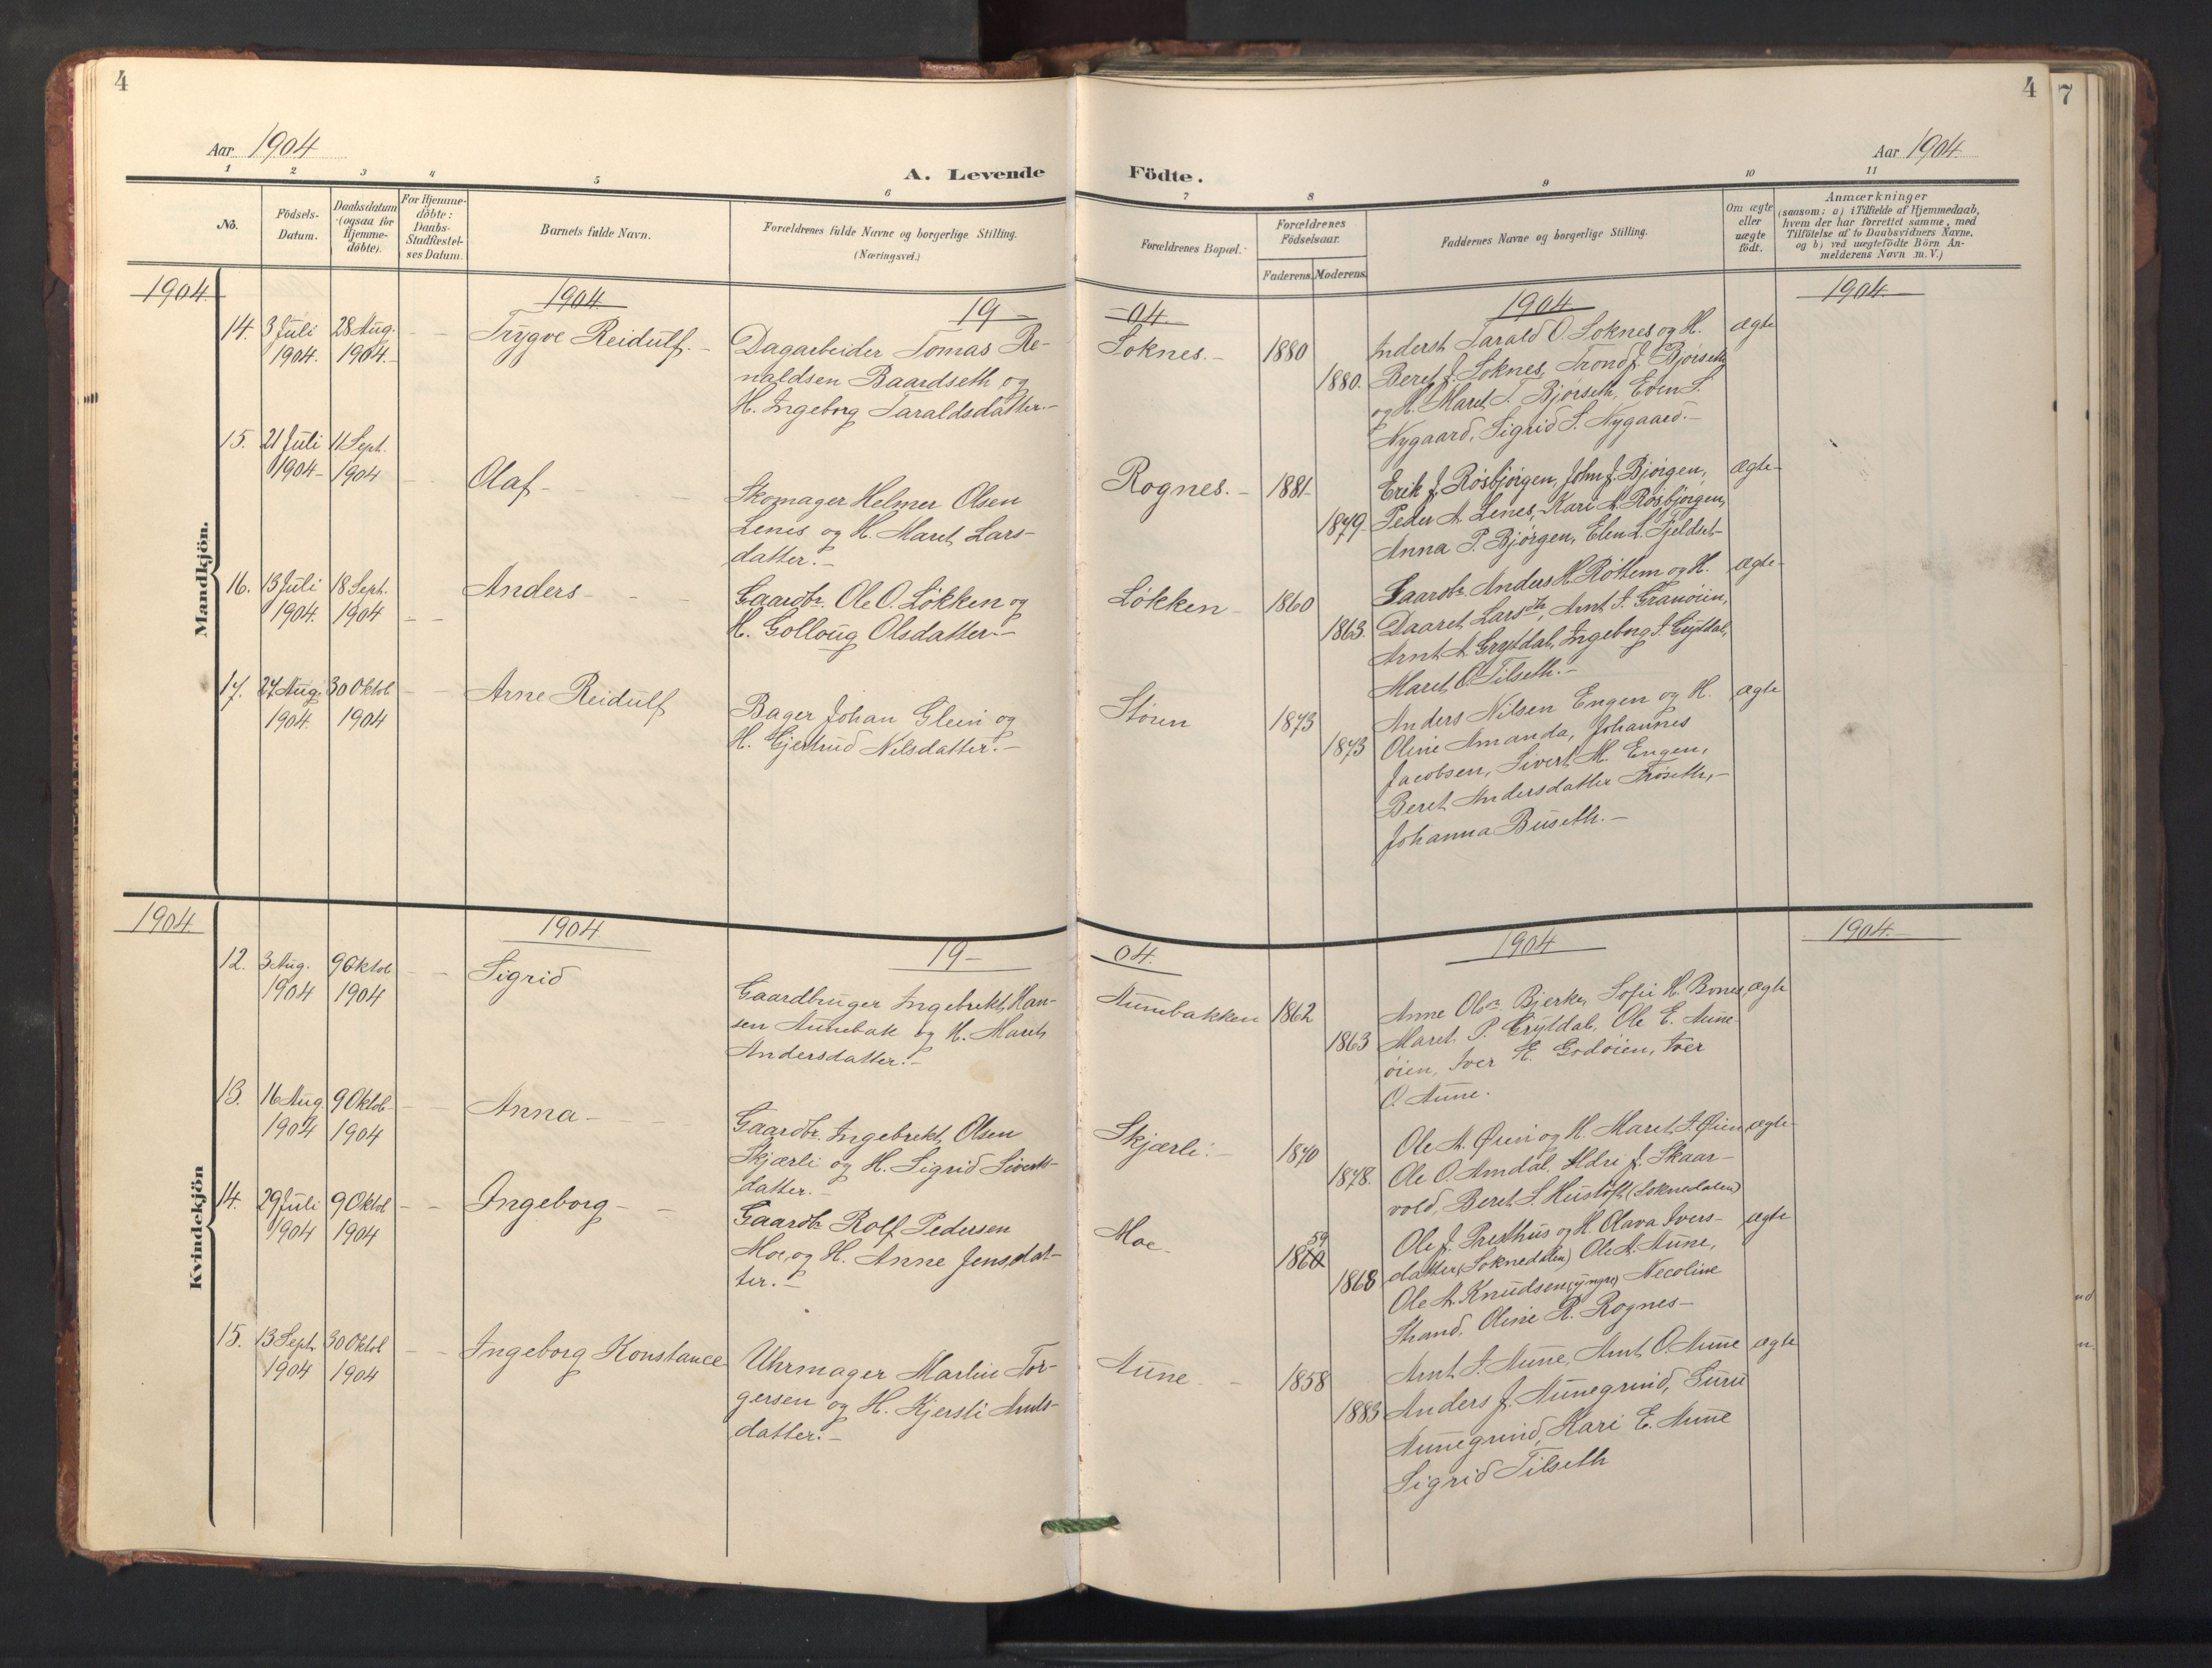 4
4
7
Aar 1904
Aar 1904
A. Levende
Födte.
1
2
3
4
5
6
7
8
9
10
11
No.
Födsels-
Datum.
Daabsdatum
(ogsaa for
Hjemme-
döbte).
For Hjemme-
döbte:
Daabs-
Stadfæstel-
ses Datum.
Barnets fulde Navn.
Forældrenes fulde Navne og borgerlige Stilling.
(Næringsvei.)
Forældrenes Bopæl.
Forældrenes
Födselsaar.
Faderens.
Moderens.
Faddernes Navne og borgerlige Stilling.
Om ægte
eller
uægte
født.
Anmærkninger
(saasom: a) i Tilfælde af Hjemmedaab,
hvem der har forrettet samme, med
Tilföielse af to Daabsvidners Navne,
og b) ved uægtefödte Börn An-
melderens Navn m. V.)
Mandkjön.
1904
1904
19-
04.
1904
1904
14.
3 Juli
1904.
28 Aug.
1904.-
Trygve Reidulf.-
Dagarbeider Tomas Re-
naldsen Baardseth og
H. Ingeborg Taraldsdatter.-
Soknes.-
1880
1880.
Inderst Tarald O. Soknes og H.
Beret J. Soknes, Trond J. Bjørseth
og H. Maret T. Bjørseth, Even S.
Nygaard, Sigrid S. Nygaard.-
ægte
15.
21 Juli
1904-
11 Sept.
1904
Olaf-
Skomager Helmer Olsen
Lenes og H. Maret Lars-
datter.-
Rognes.-
1881-
1879-
Erik J. Rösbjörgen, John J. Bjørgen,
Peder A. Lenes, Kari A. Rösbjørgen,
Anna P. Bjørgen, Elen L. Fjeldset-
Ægte-
16.
13 Juli
1904.
18 Sept.
1904
Anders-
Gaardbr. Ole O. Løkken og
H. Golloug Olsdatter.-
Løkken-
1860
1863.
Gaardbr. Anders H. Røttem og H.
Daaret Larsdtr, Arnt I. Granøien,
Arnt A. Grytdal, Ingeborg I. Grytdal,
Maret O. Tilseth.-
ægte-
17.
27 Aug.
1904.
30 Oktob
1904
Arne Reidulf
Bager Johan Glein og
H. Gjertrud Nilsdatter.-
Støren
1873
1873
Anders Nilsen Engen og H.
Oline Amanda, Johannes
Jacobsen, Sivert M. Engen,
Beret Andersdatter Frøseth,-
Johanna Buseth.-
ægte
Kvindekjön
1904
1904
19-
04.
1904
1904.
12.
3 Aug.
1904
9 Oktob
1904
Sigrid
Gaardbruger Ingebrekt Han-
sen Aunebak og H. Marit
Andersdatter.-
Aunebakken
1862
1863
Anne Olsdr. Bjerke, Sofie H. Bones,
Maret P. Grytdal, Ole E. Aune-
øien, Iver E. Godøien, Iver
O. Aune.
ægte
13.
16 Aug
1904
9 Oktob-
1904
Anna-
Gaardbr. Ingebrekt Olsen
Skjærli og H. Sigrid Siverts-
datter.-
Skjærli.-
1870
1878.
Ole A. Øien og H. Maret I. Øien
Ole O. Amdal, Ildri J. Skaar-
vold, Beret S. Hustöft (Soknedalen)
ægte-
14.
29 Juli
1904
9 Oktob
1904
Ingeborg-
Gaardbr Rolf Pedersen
Moe, og H. Anne Jensdat-
ter.-
Moe-
59
1860
1868
Ole J. Presthus og H. Olava Ivers-
datter (Soknedalen) Ole A. Aune,
Ole A. Knudsen (yngre) Necoline
Strand, Oline R. Rognes-
ægte
15.
13 Sept.
1904
30 Oktob
1904
Ingeborg Konstance
Uhrmager Martin Tor-
gersen og H. Kjersti Arnts-
datter.-
Aune-
1858
1883
Arnt I. Aune, Arnt O. Aune
Anders J. Aunegrind, Guru
Aunegrind, Kari E. Aune
Sigrid Tilseth
ægte